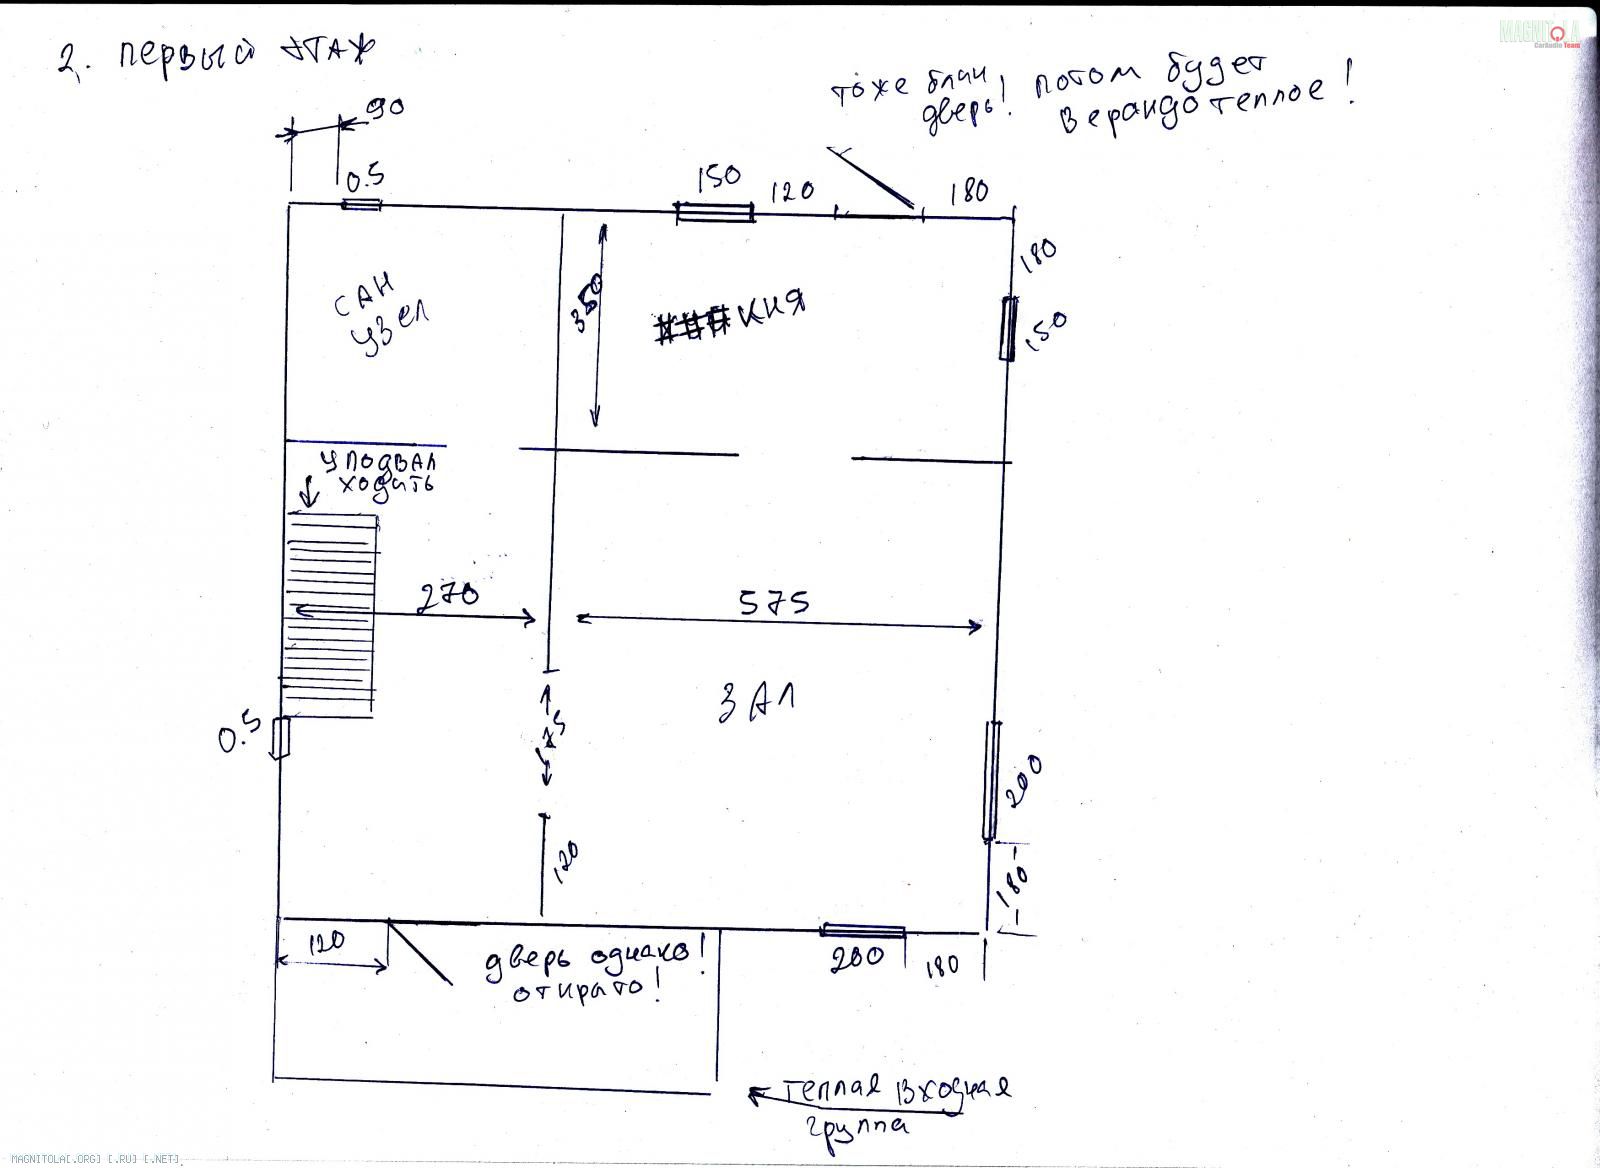 2. первый этаж
тоже блин дверь! потом будет
верандо теплое!
90
0.5
150
120
180
180
150
САН
УЗЕЛ
350
КНЯ
У ПОДВАЛ
ХОДИТЬ
270
575
ЗАЛ
0.5
175
200
120
180
120
дверь однако!
открыто!
200
180
теплая входная
группа
MAGNITOLA
CarAudio Team
MAGNITOLA[.ORG] [.RU] [.NET]